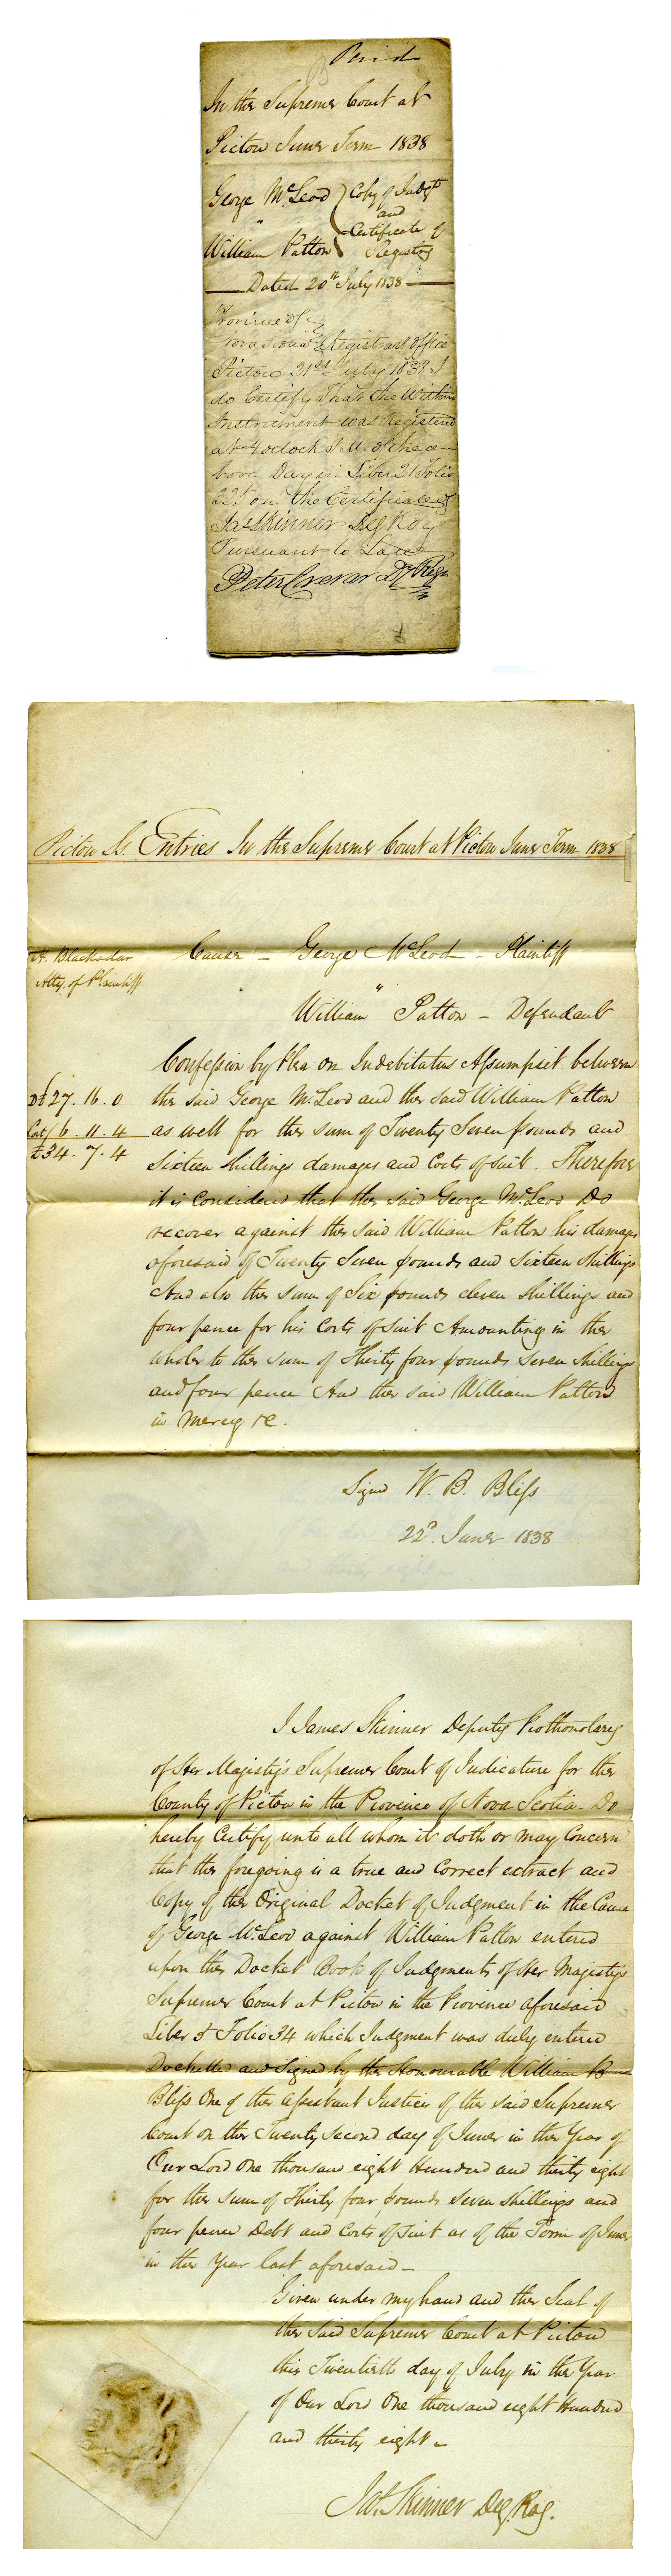 Paid
In the Supreme Court at
Pictou June Term 1838
George McLeod } Copy of Judgt
"
and
William Patton Certificate of
Registry
Dated 20th July 1838
Province of
Nova Scotia } Registrars Office
Pictou 21st July 1838 I
do Certify that the Within
Instrument was Registered
at 4 oclock P.M. of the a-
bove Day in Liber 21 Folio
on the Certificate of
Jas Skinner
Pursuant to Law
Peter Crerar Dy Regr
Pictou Ss. Entries In the Supreme Court at Pictou June Term 1838
H. Blackadar
Atty. of Plaintiff
Cause – George McLeod – Plaintiff
"
William Patton – Defendant
Confession by Plea on Indebitatus Assumpsit between
Dt £27. 16. 0 the said George McLeod and the said William Patton
Cost 6. 11. 4 as well for the sum of Twenty Seven pounds and
£34. 7. 4 Sixteen shillings damages and Costs of suit. Therefore
it is Considered that the said George McLeod Do
recover against the said William Patton his damages
aforesaid of Twenty Seven pounds and Sixteen Shillings
And also the sum of Six pounds eleven shillings and
four pence for his Costs of Suit Amounting in the
whole to the sum of Thirty four pounds Seven Shillings
and four pence And the said William Patton
in Mercy &c.
Signd W. B. Bliss
22d. June 1838
I James Skinner Deputy Prothonotary
of Her Majesty's Supreme Court of Judicature for the
County of Pictou in the Province of Nova Scotia – Do
hereby Certify unto all whom it doth or may Concern
that the foregoing is a true and Correct extract and
Copy of the Original Docket of Judgment in the Cause
of George McLeod against William Patton entered
upon the Docket Book of Judgments of Her Majestys
Supreme Court at Pictou in the Province aforesaid
Liber 5 Folio 34 which Judgment was duly entered
Docketted and Signed by the Honourable William B
Bliss One of the Assistant Justices of the said Supreme
Court on the Twenty Second day of June in the Year of
Our Lord One thousand eight Hundred and thirty eight
for the sum of Thirty four pounds Seven Shillings and
four pence Debt and Costs of Suit as of the Term of June
in the Year last aforesaid –
Given under my hand and the Seal of
the said Supreme Court at Pictou
this Twentieth day of July in the Year
of Our Lord One thousand eight Hundred
and thirty eight –
Jas. Skinner Dep. Roy.